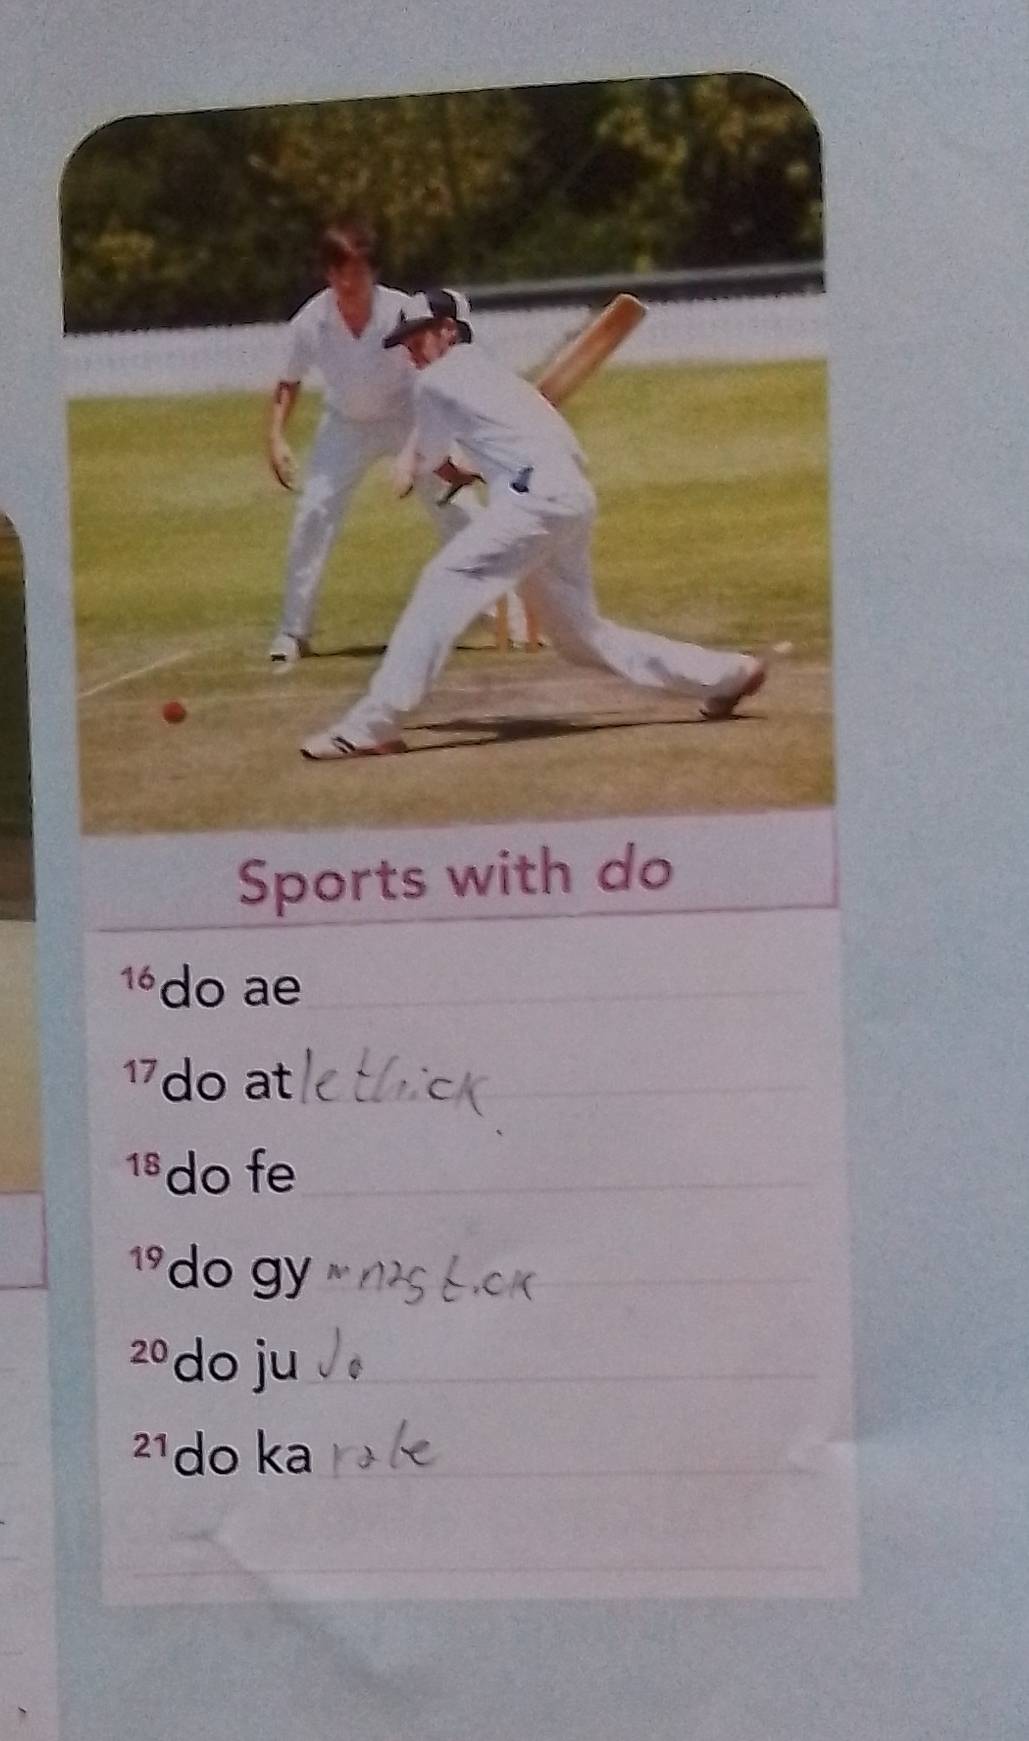 Sports with do
16 do ae
17 do atlethick
18 do fe
19 do gymnastick
20 do judo
21 do karate